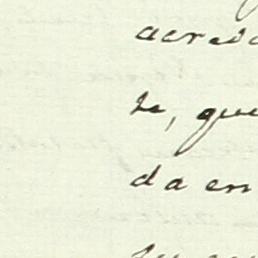 acred
te, que
da en